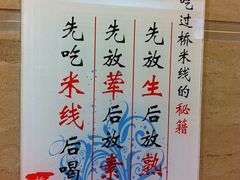 吃过桥米线的秘籍
先放生后放熟
先放荤后放素
先吃米线后喝